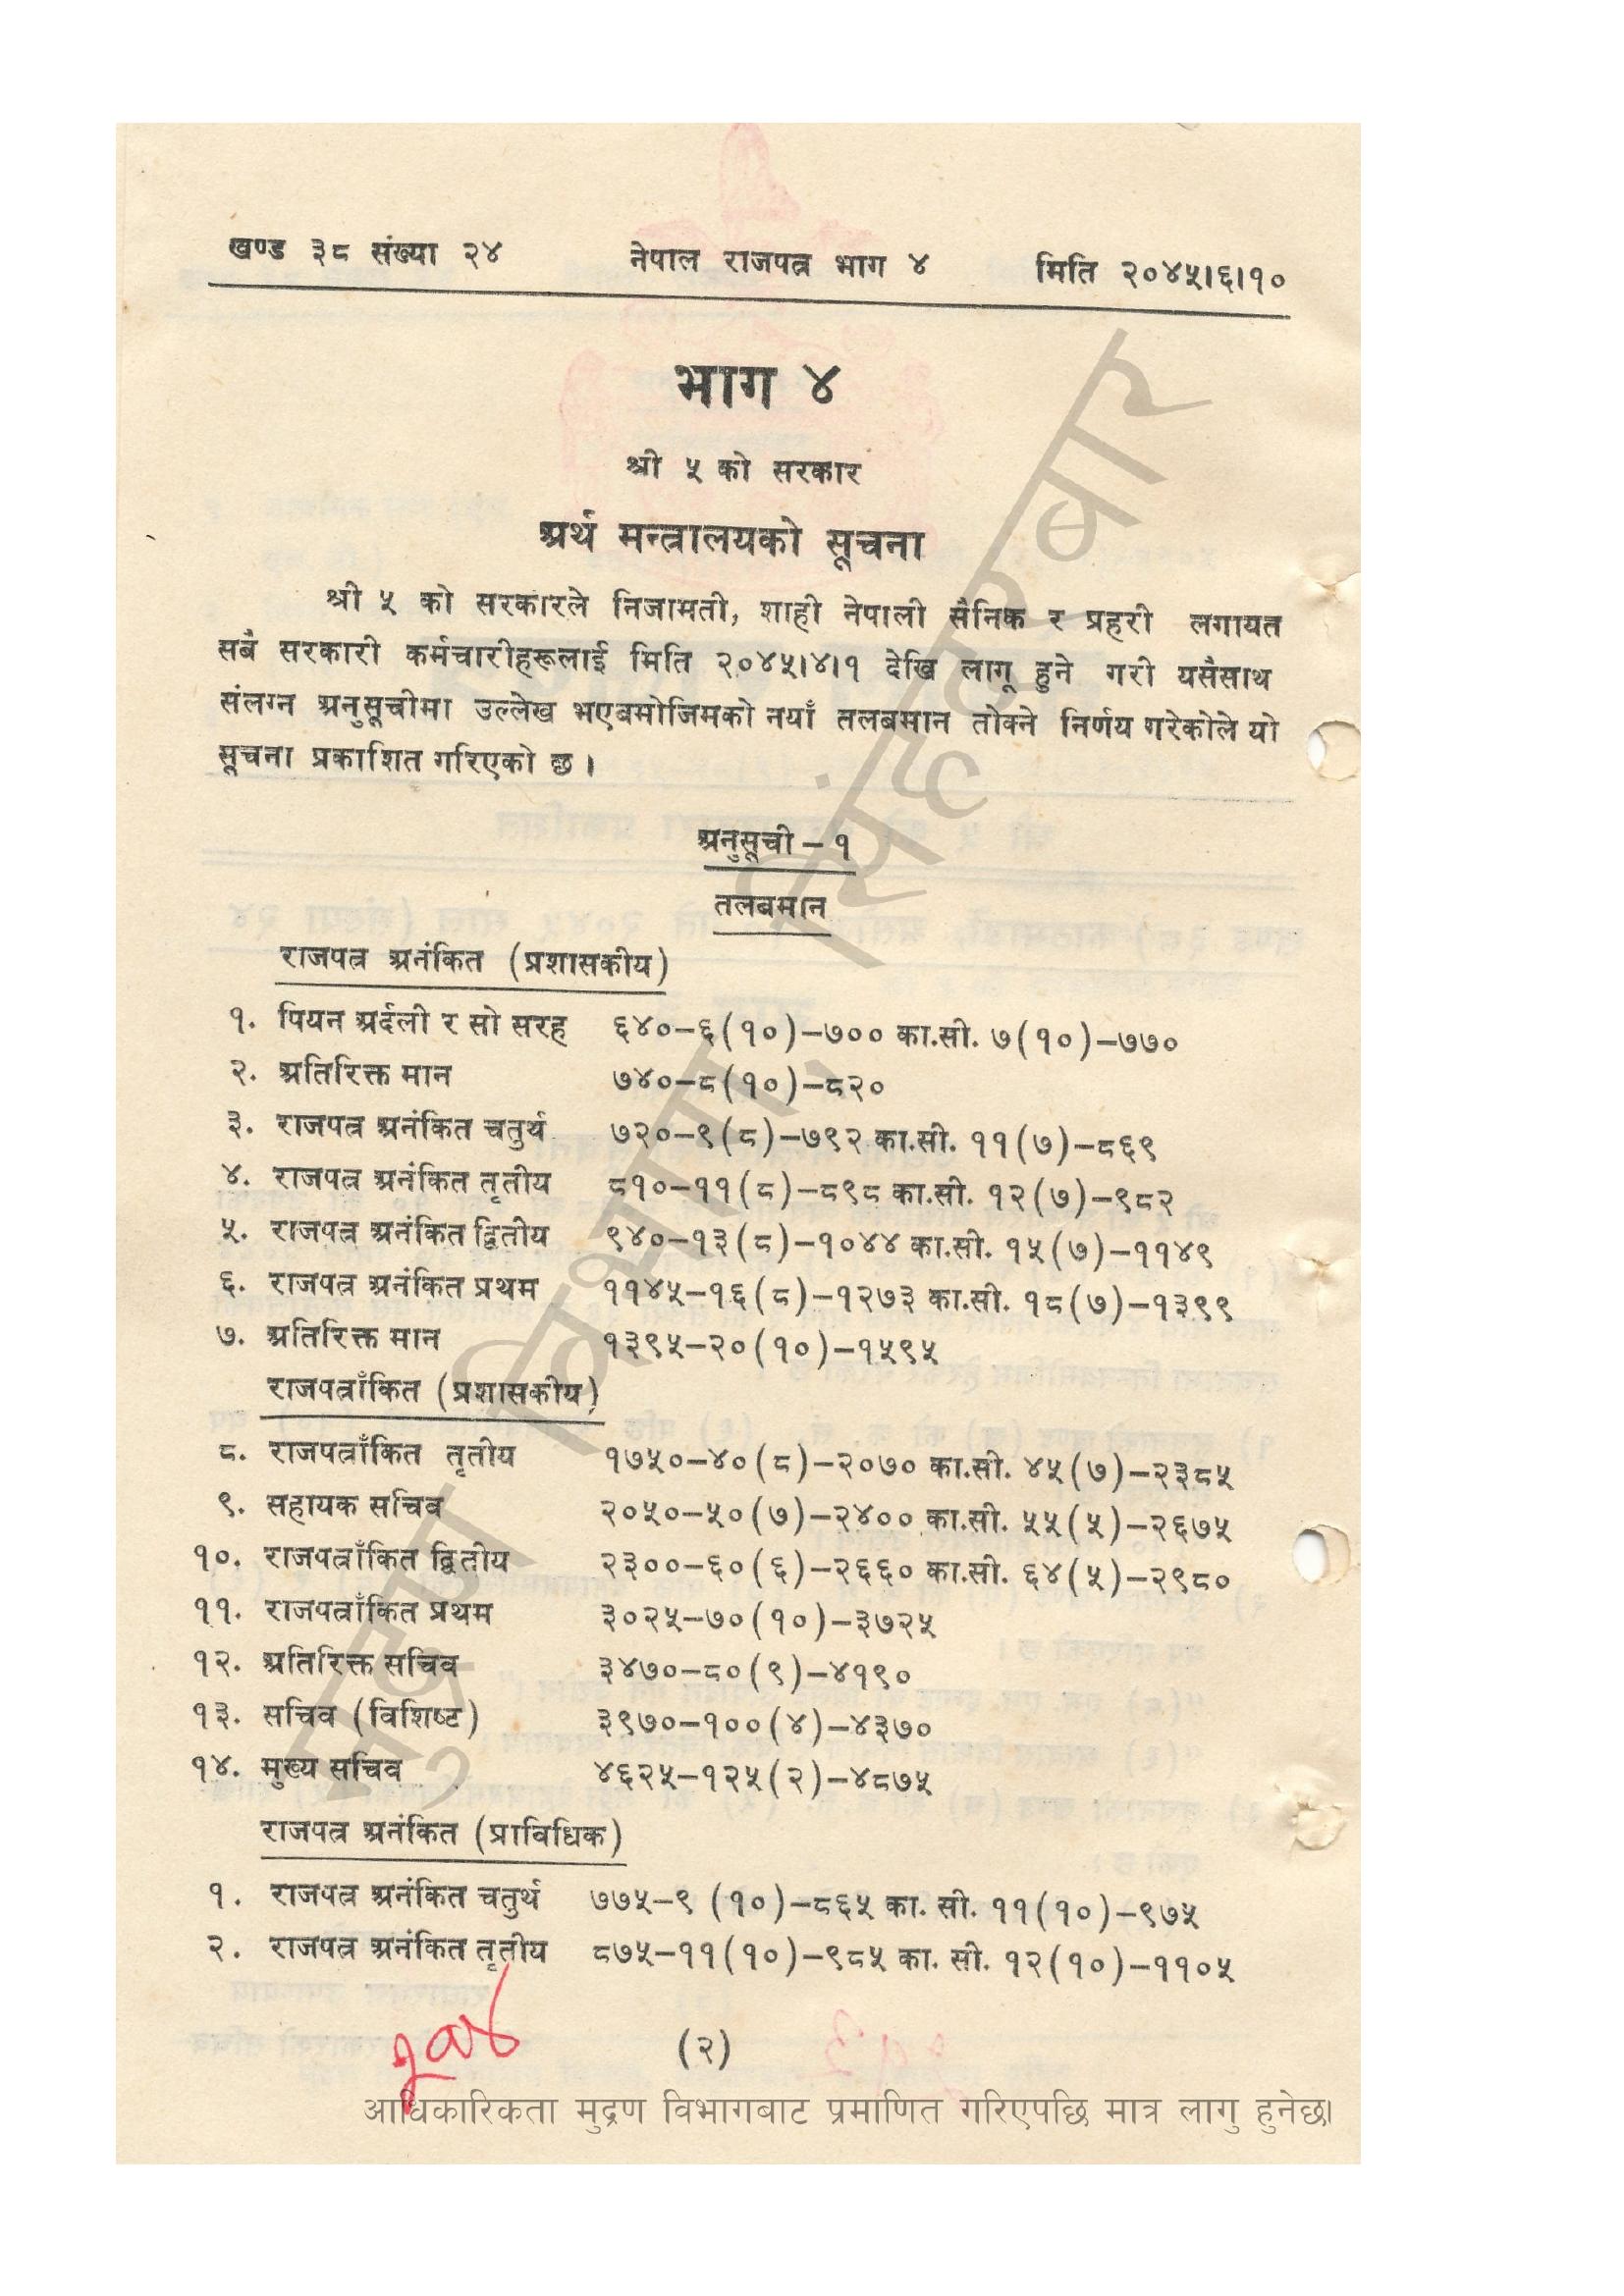 खण्ड ३८ संख्या २४ नेपाल राजपत्र भाग ४ मिति २०४५।६।१०
भाग ४
श्री ५ को सरकार
अर्थ मन्त्रालयको सूचना
श्री ५ को सरकारले निजामती, शाही नेपाली सैनिक र प्रहरी लगायत
सबै सरकारी कर्मचारीहरूलाई मिति २०४५।४।१ देखि लागू हुने गरी यसैसाथ
संलग्न अनुसूचीमा उल्लेख भएबमोजिमको नयाँ तलबमान तोक्ने निर्णय गरेकोले यो
सूचना प्रकाशित गरिएको छ ।
अनुसूची – १
तलबमान
राजपत्र अनंकित (प्रशासकीय)
१. पियन अर्दली र सो सरह ६४०–६(१०)–७०० का.सी. ७(१०)–७७०
२. अतिरिक्त मान ७४०–८(१०)–८२०
३. राजपत्र अनंकित चतुर्थ ७२०–९(८)–७९२ का.सी. ११(७)–८६९
४. राजपत्र अनंकित तृतीय ८१०–११(८)–८९८ का.सी. १२(७)–९८२
५. राजपत्र अनंकित द्वितीय ९४०–१३(८)–१०४४ का.सी. १५(७)–११४९
६. राजपत्र अनंकित प्रथम ११४५–१६(८)–१२७३ का.सी. १८(७)–१३९९
७. अतिरिक्त मान १३९५–२०(१०)–१५९५
राजपत्राँकित (प्रशासकीय)
८. राजपत्राँकित तृतीय १७५०–४०(८)–२०७० का.सी. ४५(७)–२३८५
९. सहायक सचिव २०५०–५०(७)–२४०० का.सी. ५५(५)–२६७५
१०. राजपत्राँकित द्वितीय २३००–६०(६)–२६६० का.सी. ६४(५)–२९८०
११. राजपत्राँकित प्रथम ३०२५–७०(१०)–३७२५
१२. अतिरिक्त सचिव ३४७०–८०(९)–४१९०
१३. सचिव (विशिष्ट) ३९७०–१००(४)–४३७०
१४. मुख्य सचिव ४६२५–१२५(२)–४८७५
राजपत्र अनंकित (प्राविधिक)
१. राजपत्र अनंकित चतुर्थ ७७५–९ (१०)–८६५ का. सी. ११(१०)–९७५
२. राजपत्र अनंकित तृतीय ८७५–११(१०)–९८५ का. सी. १२(१०)–११०५
(२)
आधिकारिकता मुद्रण विभागबाट प्रमाणित गरिएपछि मात्र लागु हुनेछ।
मुद्रण विभाग, सिंहदरबार